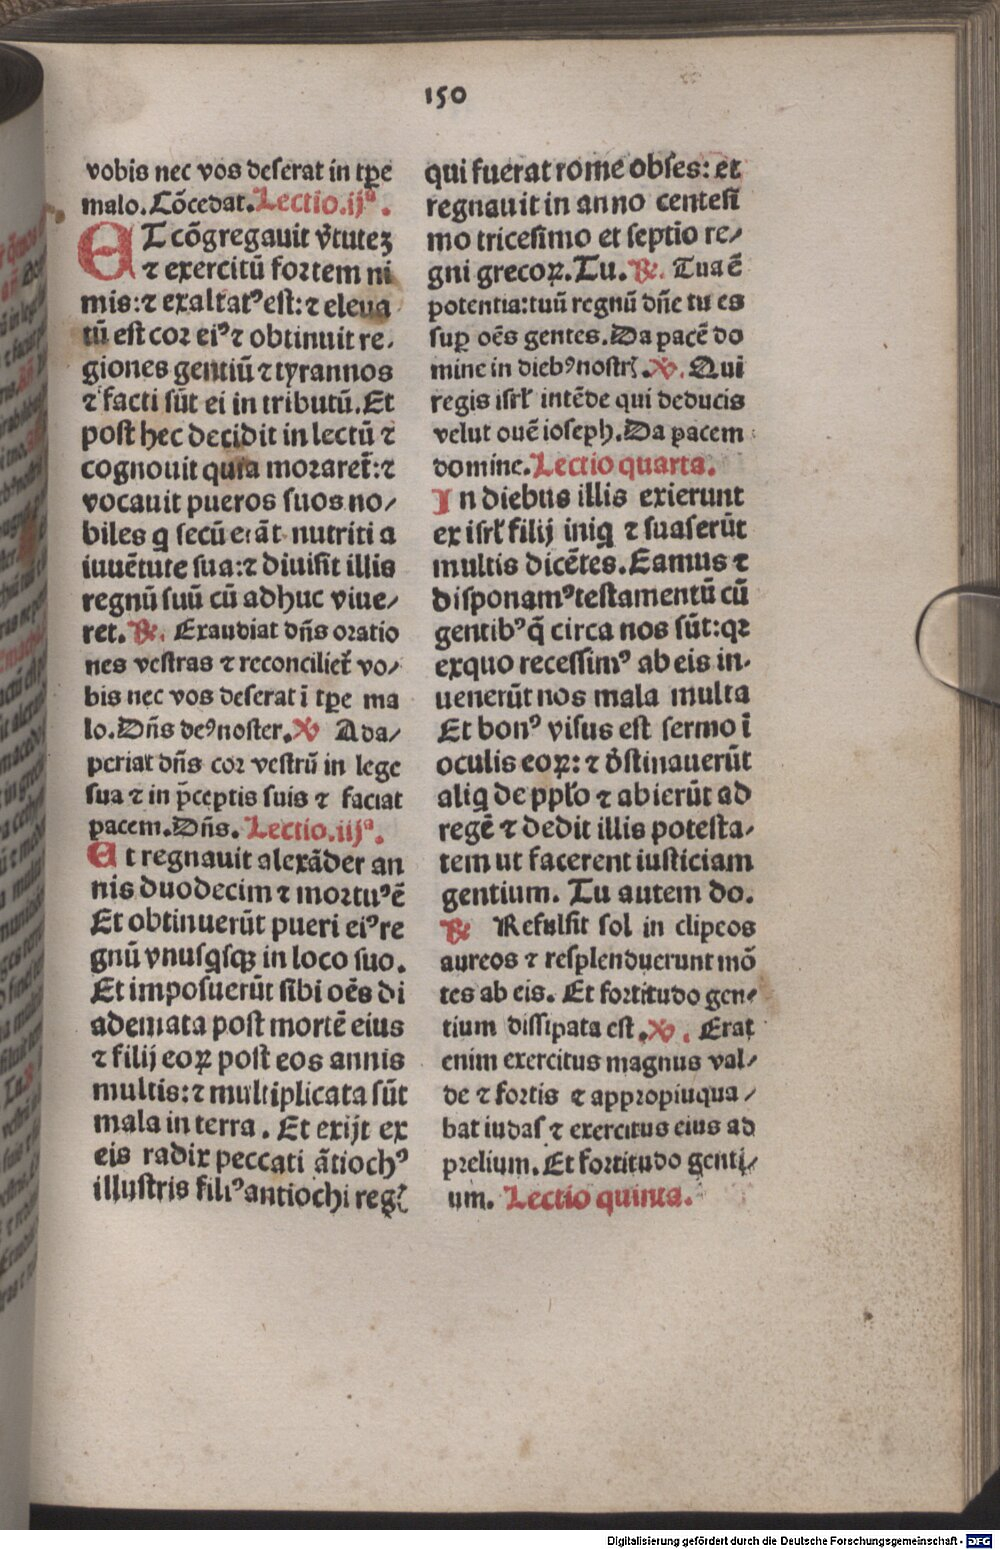 150
vobis nec vos deserat in tꝑe
malo. Cõcedat. Lectio.ijª.
ET cõgregauit v̓tutez
⁊ exercitũ fortem ni
mis:⁊ exaltatꝰ est:⁊ eleua
tũ est cor eiꝰ ⁊ obtinuit re/
giones gentiũ ⁊ tyrannos
⁊ facti sũt ei in tributũ. Et
post hec decidit in lectũ ⁊
cognouit quia moraret̃:⁊
vocauit pueros suos no/
biles q̣ secũ erãt nutriti a
iuuẽtute sua:⁊ diuisit illis
regnũ suũ cũ adhuc viue/
ret. ℟. Exaudiat dñs oratio
nes vestras ⁊ reconciliet̃ vo/
bis nec vos deserat ĩ tꝑe ma
lo. Dñs deꝰ noster. ℣ Ada/
periat dñs cor vestrũ in lege
sua ⁊ in p̃ceptis suis ⁊ faciat
pacem. Dñs. Lectio.iijª.
Et regnauit alexãder an
nis duodecim ⁊ mortuꝰ ẽ
Et obtinuerũt pueri eiꝰ re
gnũ vnusq̣sqꝫ in loco suo.
Et imposuerũt sibi oẽs di
ademata post mortẽ eius
⁊ filij eoꝝ post eos annis
multis:⁊ multiplicata sũt
mala in terra. Et exijt ex
eis radix peccati ãtiochꝰ
illustris filiꝰ antiochi regꝭ
qui fuerat rome obses: et
regnauit in anno centesi
mo tricesimo et septĩo re/
gni grecoꝝ. Tu. ℟. Tua ẽ
potentia:tuũ regnũ dñe tu es
suꝑ oẽs gentes. Da pacẽ do
mine in diebꝰ nostrꝭ. ℣. Qui
regis isrł intẽde qui deducis
velut ouẽ ioseph. Da pacem
domine. Lectio quarta.
In diebus illis exierunt
ex isrł filij iniq̣ ⁊ suaserũt
multis dicẽtes. Eamus ⁊
disponamꝰ testamentũ cũ
gentibꝰ q̃ circa nos sũt:qꝛ
exquo recessimꝰ ab eis in/
uenerũt nos mala multa
Et bonꝰ visus est sermo ĩ
oculis eoꝝ: ⁊ d̓stinauerũt
aliq̣ de ppło ⁊ abierũt ad
regẽ ⁊ dedit illis potesta/
tem ut facerent iusticiam
gentium. Tu autem do.
℟ Refulsit sol in clipeos
aureos ⁊ resplenduerunt mõ
tes ab eis. Et fortitudo gen/
tium dissipata est. ℣. Erat
enim exercitus magnus val/
de ⁊ fortis ⁊ appropiuqua/
bat iudas ⁊ exercitus eius ad
prelium. Et fortitudo genti/
um. Lectio quinta.
Digitalisierung gefördert durch die Deutsche Forschungsgemeinschaft - DFG